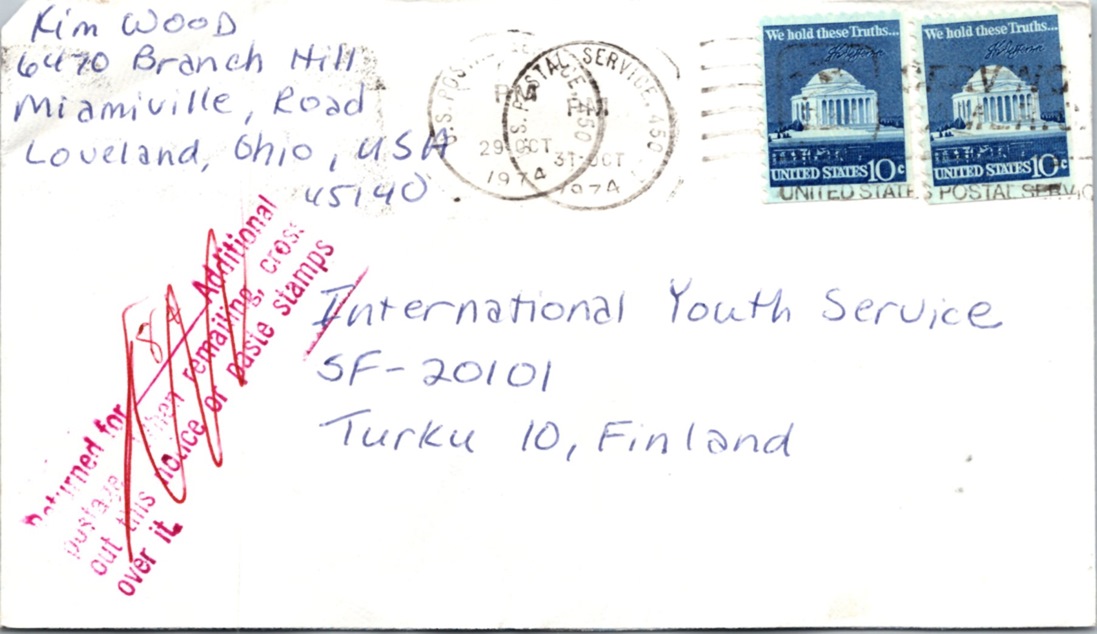 Kim Wood
6470 Branch Hill
Miamiville, Road
Loveland, Ohio, USA
45140
U.S. POSTAL SERVICE, 450
PM
29 OCT
1974
U.S. POSTAL SERVICE, 450
PM
31 OCT
1974
We hold these Truths...
UNITED STATES 10c
We hold these Truths...
UNITED STATES 10c
UNITED STATES POSTAL SERVIC
Returned for 8¢ Additional
postage. When remailing, cross
out this notice or paste stamps
over it.
International Youth Service
SF-20101
Turku 10, Finland